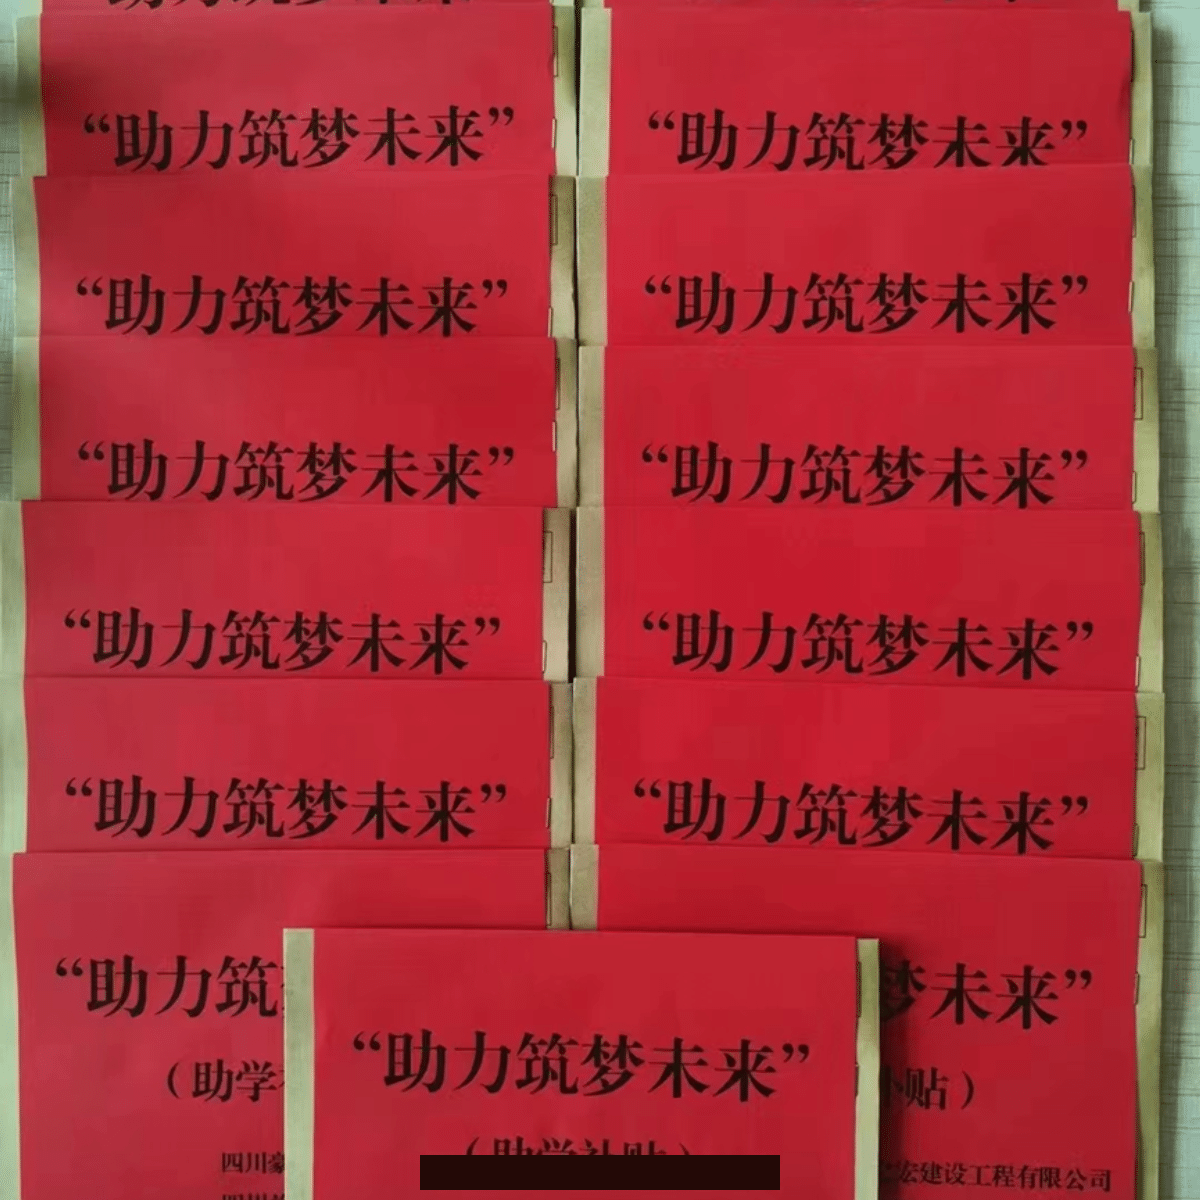 “助力筑梦未来”
“助力筑梦未来”
“助力筑梦未来”
“助力筑梦未来”
“助力筑梦未来”
“助力筑梦未来”
“助力筑梦未来”
“助力筑梦未来”
“助力筑梦未来”
“助力筑梦未来”
“助力筑梦未来”
“助力筑
梦未来”
（助学
补贴）
四川豪
宏建设工程有限公司
四川
“助力筑梦未来”
（助学补贴）